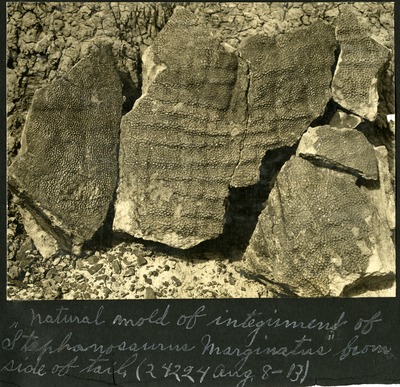 Natural mold of integument of
"Stephanosaurus Marginatus" from
side of tail, (24224 Aug 8-13)